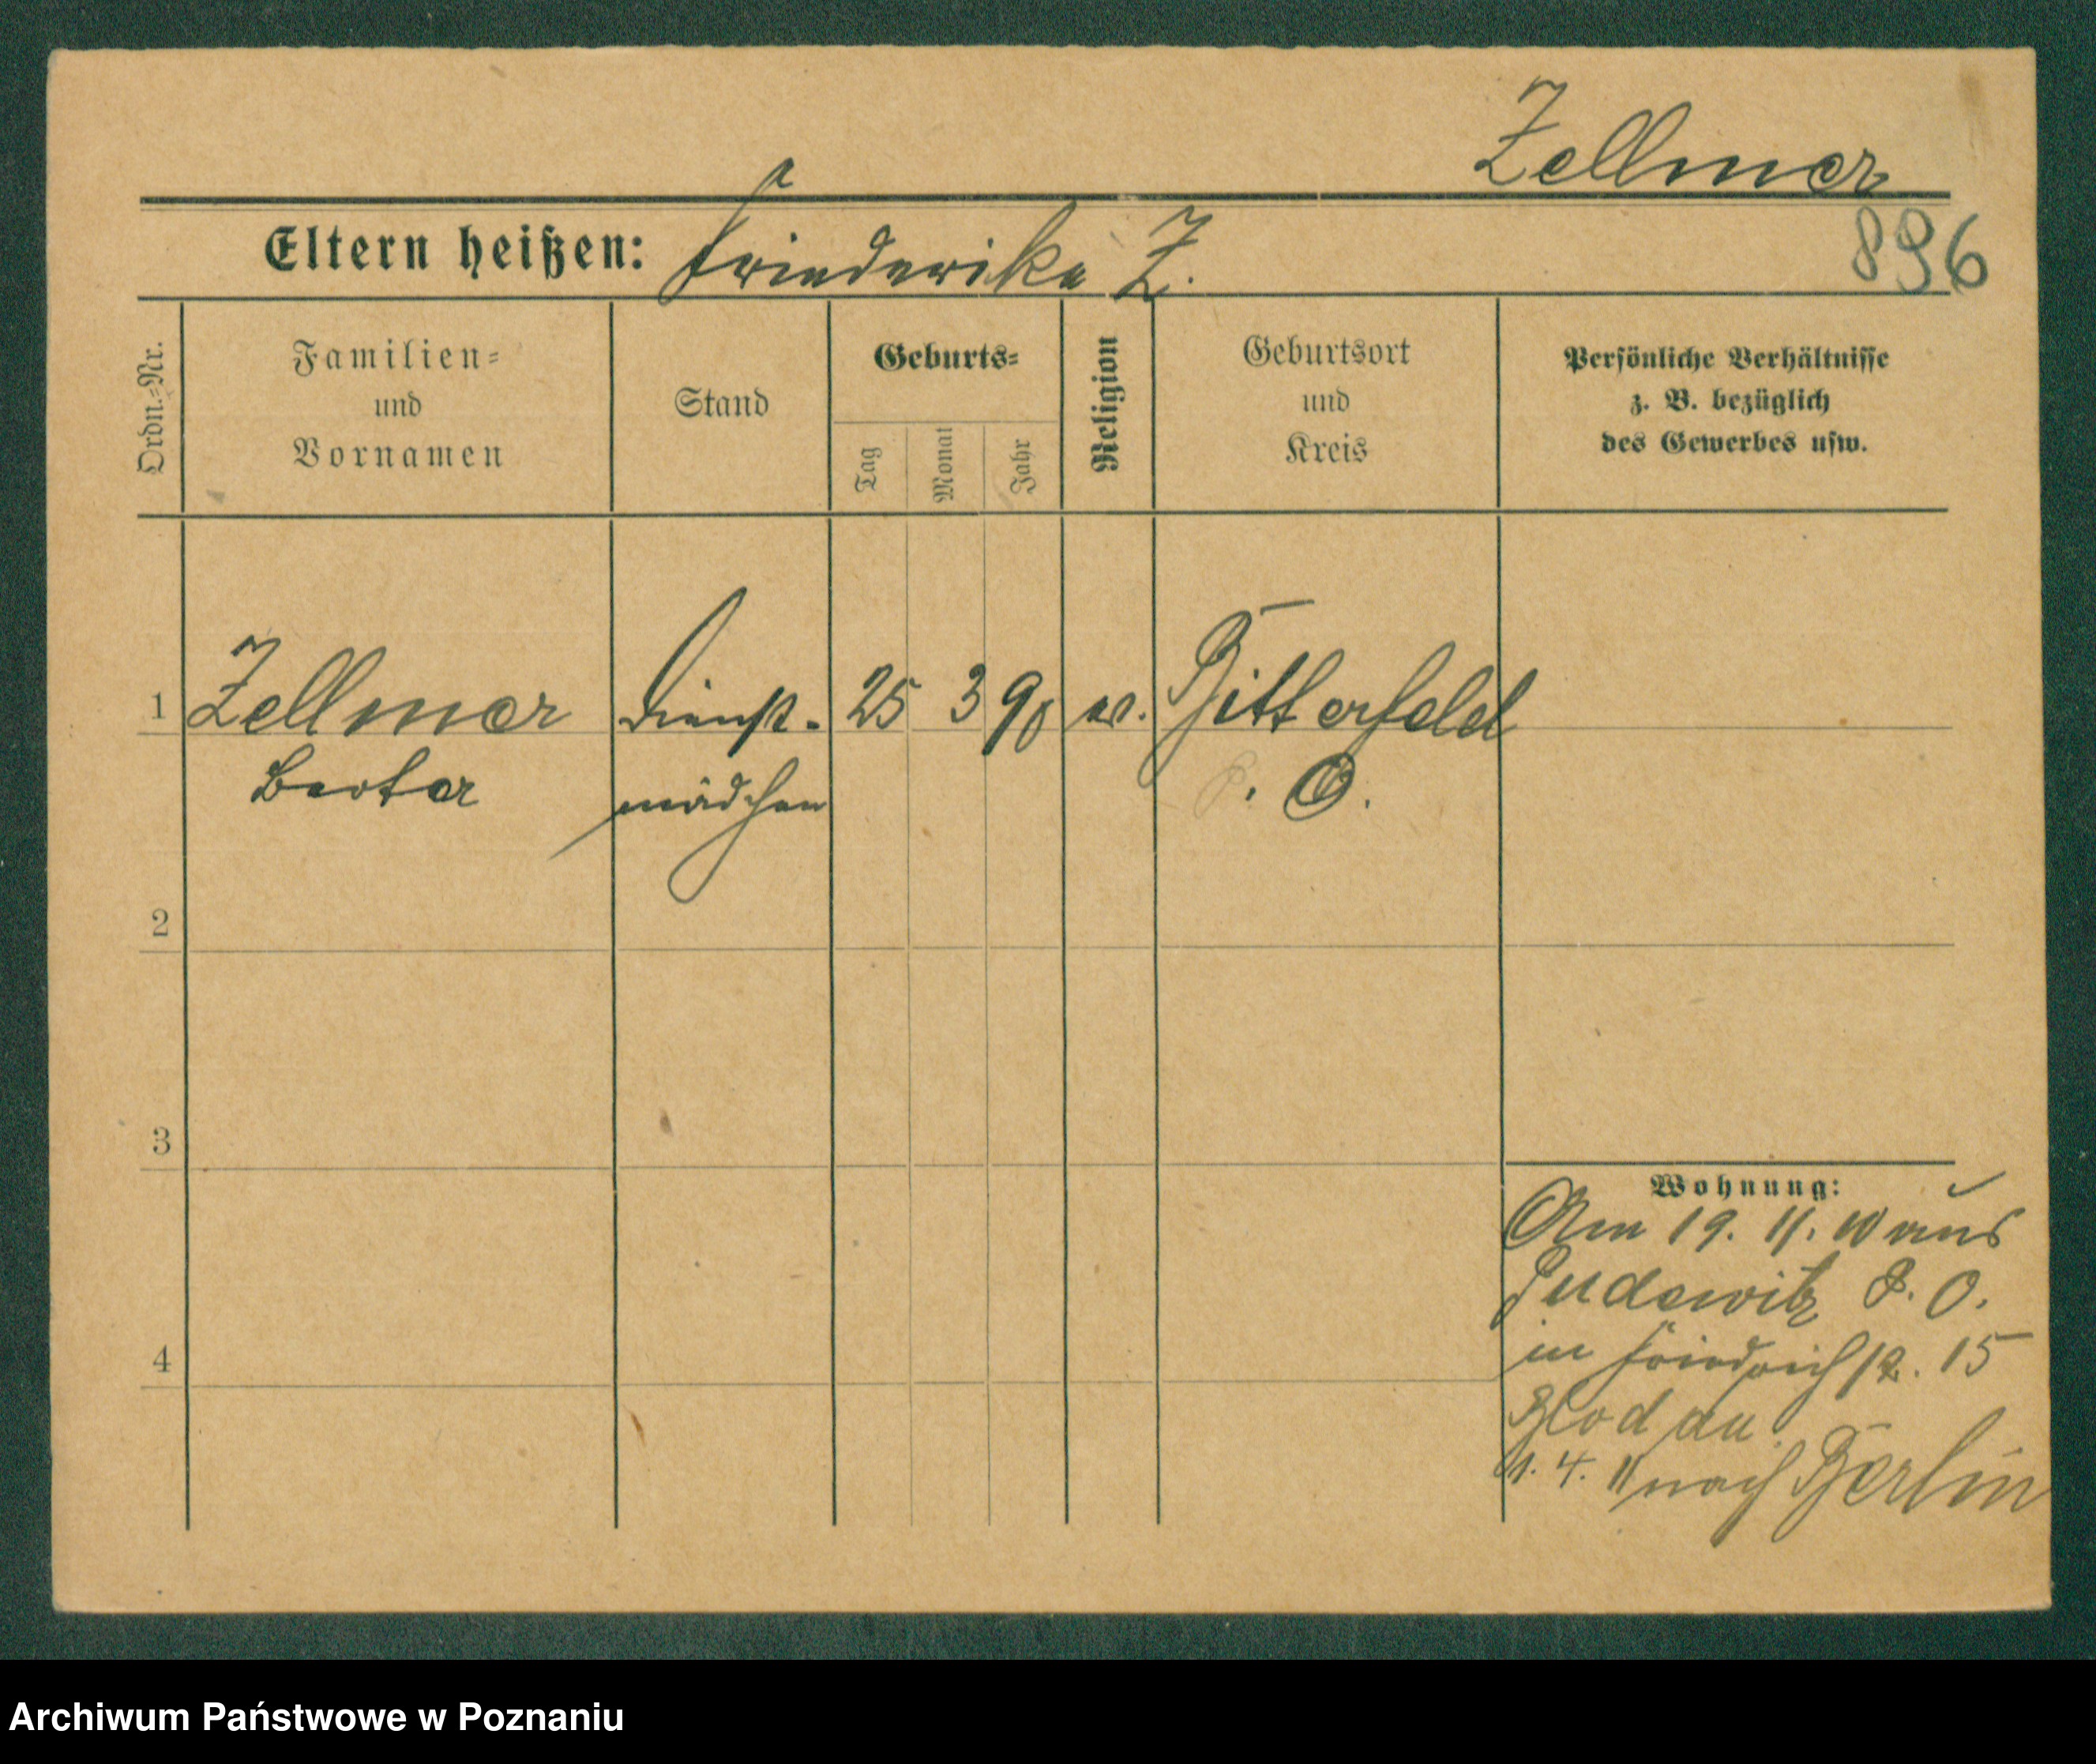 Zellmer
896
Eltern heißen: Friederike Z.
Ordn.=Nr.
Familien=
und
Vornamen
Stand
Geburts=
Tag
Monat
Jahr
Religion
Geburtsort
und
Kreis
Persönliche Verhältnisse
z. B. bezüglich
des Gewerbes usw.
1 Zellmer Dienst- 25 3 90 ev. Bitterfeld
Berta mädchen P. O.
2
3
4
Wohnung:
Am 19. 11. 10 aus
Pudewitz P. O.
in Friedrichstr. 15
1. 4. 11 nach Berlin
Archiwum Państwowe w Poznaniu